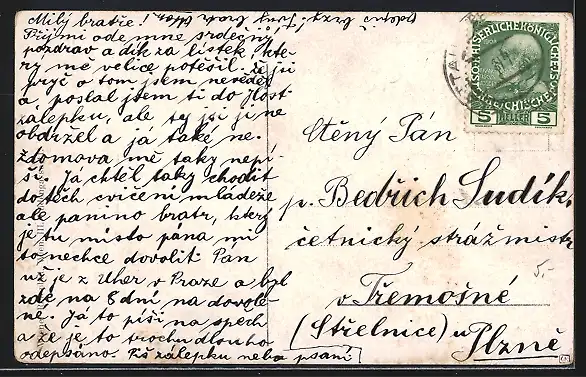 Milý bratře!
Přijmi ode mne srdečný
pozdrav a dík za lístek, kte-
rý mě velice potěšil. že ji
pryč o tom jsem nevěděl
a poslal jsem ti do Host
zálepku, ale ty jsi ji ne
obdržel a já také ne.
Z domova mě taky nepí-
ší. Já chtěl taky chodit
do těch cvičení mládeže
ale panino bratr, který
je tu místo pána mi
to nechce dovolit. Pan
už je z Uher v Praze a byl
zde na 8 dní na dovole-
né. Já to píši na spěch
a že je to trochu dlouho
odepsáno. Piš zálepku nebo psaní
Ctěný Pán
p. Bedřich Sudík,
četnický strážmistr
v Třemošné
(Střelnice) u
Plzně
5 HELLER 5
5.-